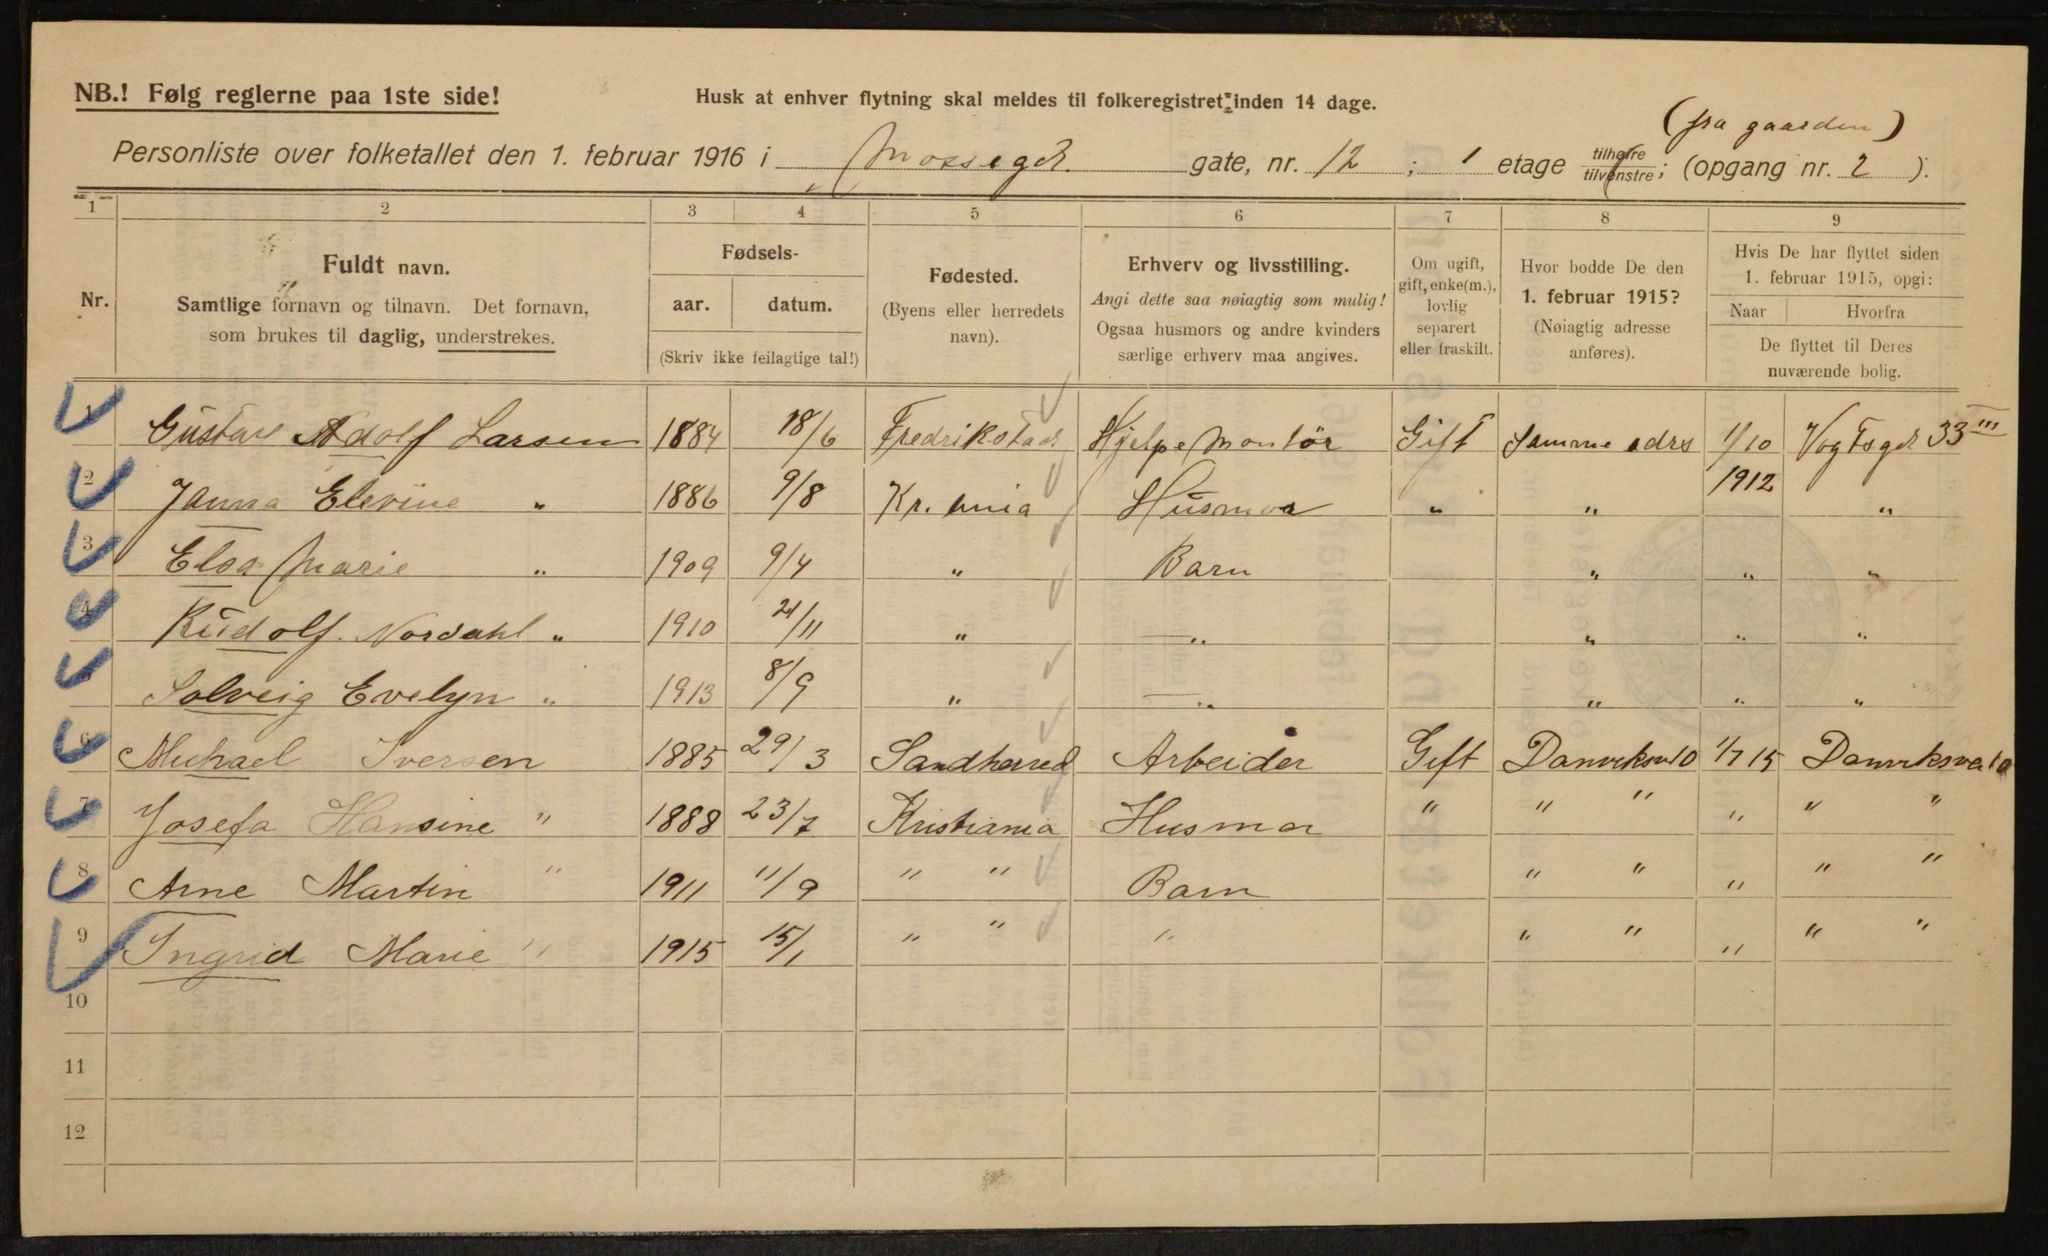 NB.! Følg reglerne paa 1ste side!
Husk at enhver flytning skal meldes til folkeregistret inden 14 dage.
(fra gaarden)
Personliste over folketallet den 1. februar 1916 i Mossegt. gate, nr. 12 ; 1 etage tilhøire / tilvenstre ; (opgang nr. 2 ).
1 2 3 4 5 6 7 8 9
Nr.
Fuldt navn.
Samtlige fornavn og tilnavn. Det fornavn,
som brukes til daglig, understrekes.
Fødsels-
aar. datum.
(Skriv ikke feilagtige tal!)
Fødested.
(Byens eller herredets
navn).
Erhverv og livsstilling.
Angi dette saa nøiagtig som mulig!
Ogsaa husmors og andre kvinders
særlige erhverv maa angives.
Om ugift,
gift, enke(m.),
lovlig
separert
eller fraskilt.
Hvor bodde De den
1. februar 1915?
(Nøiagtig adresse
anføres).
Hvis De har flyttet siden
1. februar 1915, opgi:
Naar Hvorfra
De flyttet til Deres
nuværende bolig.
1 Gustav Adolf Larsen 1884 18/6 Fredrikstad Hjelpe Montör Gift Samme adrs 1/10 1912 Vogtsgt 33 III
2 Janna Elevine " 1886 9/8 Kr.ania Husmor " " "
3 Elsa Marie " 1909 9/4 " Barn " " "
4 Rudolf Nordahl " 1910 21/11 " " " " "
5 Solveig Evelyn " 1913 8/9 " " " " "
6 Michael Iversen 1885 29/3 Sandherred Arbeider Gift Danviksv 10 1/7 15 Danviksvei 10
7 Josefa Hansine " 1888 23/7 Kristiania Husmor " " " " " "
8 Arne Martin " 1911 11/9 " " Barn " " " " "
9 Ingrid Marie " 1915 15/1 " " " " " " " "
10
11
12